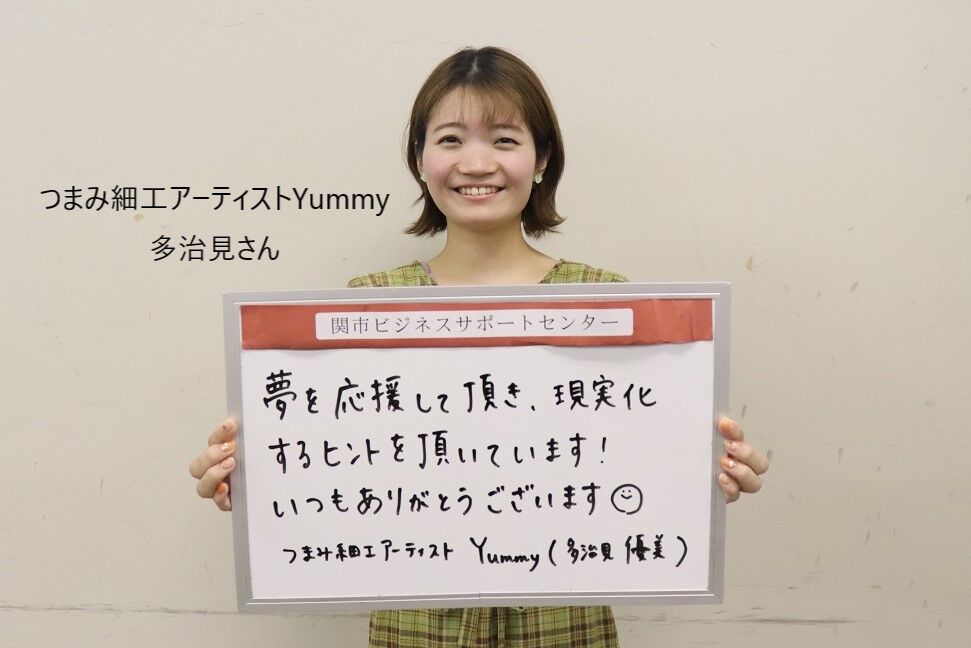 つまみ細工アーティストYummy
多治見さん
関市ビジネスサポートセンター
夢を応援して頂き、現実化
するヒントを頂いています!
いつもありがとうございます
つまみ細工アーティスト Yummy(多治見 優美)